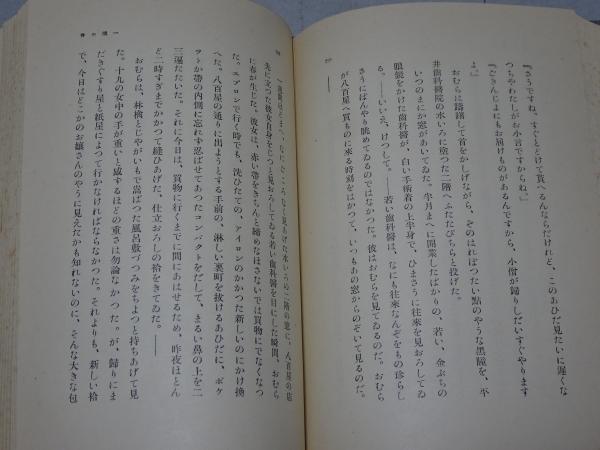 『さうですね。すぐとどけて貰へるんならだけれど、このあひだみたいに遅くな
つちやわたしがお小言ですからね。』
『ごきんじよにもお届けものがあるんですから、小僧が帰りしだいすぐやります
よ。』
おむらは躊躇して首をかしげながら、そのはれぼつたい點のやうな黑瞳を、平
井歯科醫院の水いろに塗つた二階へふたたびちらと投げた。
いつのまにか窓があいてゐた。半月まへに開業したばかりの、若い、金ぶちの
眼鏡をかけた歯科醫が、白い手術着の上半身で、ひまさうに往來を見おろしてゐ
る。――いいえ、けつして。――若い歯科醫は、なにも往來なんぞをもの珍らし
さうにぼんやり眺めてゐるのではなかつた。彼はおむらを見てゐるのだ。おむら
が八百屋へ質ものに來る時刻をはかつて、いつもあの窓からのぞいて見るのだ。
――
一週間ほどまへ、なにごころなく見あげた水いろの二階の窓に、八百屋の店
先に立つた彼女自身をじつと見おろしてゐる若い歯科醫を目にした瞬間、おむら
に春が生じた。彼女は、赤い帶をきちんと締めなほさないでは買物にでなくなつ
た。エプロンで行く時でも、洗ひたての、アイロンのかかつた新しいのにかけ換
へた。八百屋の通りに出ようとする手前の、淋しい裏町を抜けるあひだに、ポケ
ツトか帶の内側に忘れず忍ばせてあつたコンパクトをだして、まるい鼻の上を二
三遍たたいた。それに今日は、買物に行くまでに間にあはせるため、昨夜ほとん
ど二時すぎまでかかつて縫ひあげた、仕立おろしの袷をきてゐた。――
おむらは、林檎とじやがいもで嵩ばつた風呂敷づつみをちよつと持ちあげて見
た。十九の女中の手が重いと感ずるほどの重さは勿論なかつた。が、歸りにま
だきぐすり屋と紙屋によつて行かなければならなかつた。それよりも、新しい袷
で、今日はどこかのお嬢さんのやうに見えだかも知れないのに、そんな大きな包